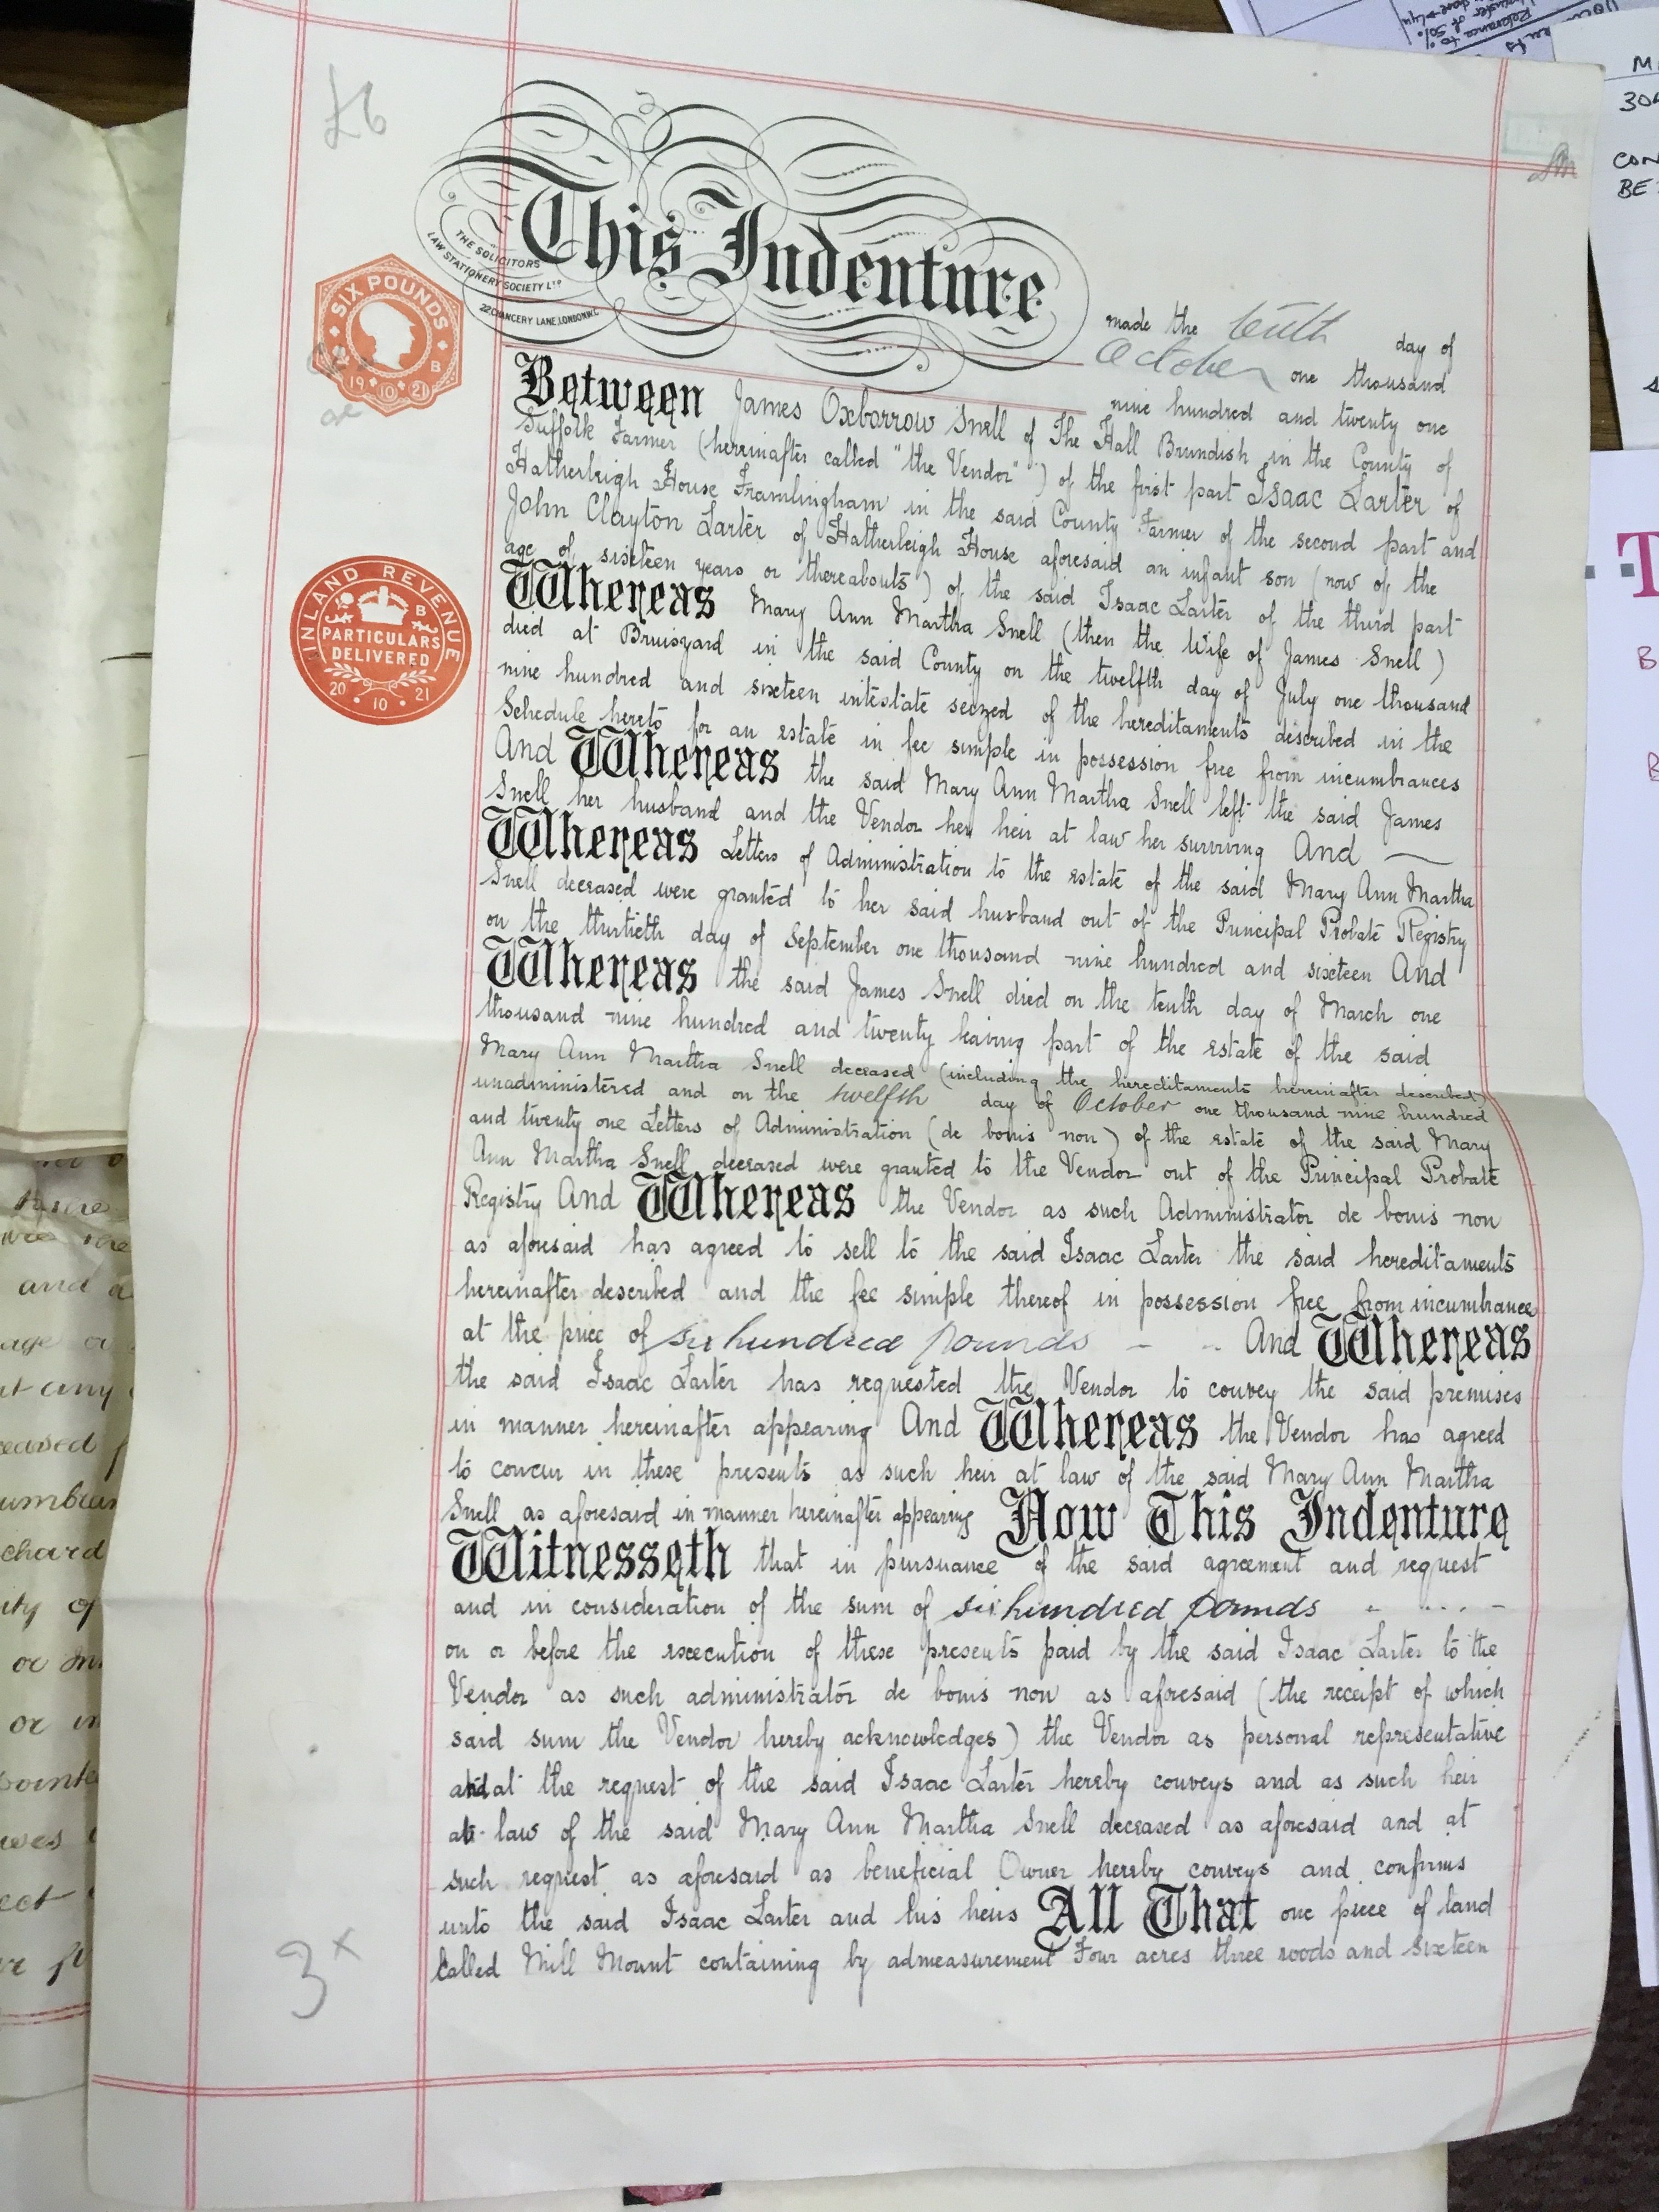 £6
This Indenture
THE SOLICITORS
LAW STATIONERY SOCIETY LTD
22 CHANCERY LANE, LONDON W.C.
made the tenth day of
October one thousand
nine hundred and twenty one
SIX POUNDS
B B
19 10 21
Between James Oxborrow Snell of The Hall Brundish in the County of
Suffolk Farmer (hereinafter called "the Vendor") of the first part Isaac Larter of
Hatherleigh House Framlingham in the said County Farmer of the second part and
John Clayton Larter of Hatherleigh House aforesaid an infant son (now of the
age of sixteen years or thereabouts) of the said Isaac Larter of the third part
Whereas Mary Ann Martha Snell (then the Wife of James Snell)
died at Bruisyard in the said County on the twelfth day of July one thousand
nine hundred and sixteen intestate seized of the hereditaments described in the
Schedule hereto for an estate in fee simple in possession free from incumbrances
And Whereas the said Mary Ann Martha Snell left the said James
Snell her husband and the Vendor her heir at law her surviving And
Whereas Letters of Administration to the estate of the said Mary Ann Martha
Snell deceased were granted to her said husband out of the Principal Probate Registry
on the thirtieth day of September one thousand nine hundred and sixteen And
Whereas the said James Snell died on the tenth day of March one
thousand nine hundred and twenty leaving part of the estate of the said
Mary Ann Martha Snell deceased (including the hereditaments hereinafter described)
unadministered and on the twelfth day of October one thousand nine hundred
and twenty one Letters of Administration (de bonis non) of the estate of the said Mary
Ann Martha Snell deceased were granted to the Vendor out of the Principal Probate
Registry And Whereas the Vendor as such Administrator de bonis non
as aforesaid has agreed to sell to the said Isaac Larter the said hereditaments
hereinafter described and the fee simple thereof in possession free from incumbrances
at the price of six hundred pounds - - And Whereas
the said Isaac Larter has requested the Vendor to convey the said premises
in manner hereinafter appearing And Whereas the Vendor has agreed
to concur in these presents as such heir at law of the said Mary Ann Martha
Snell as aforesaid in manner hereinafter appearing Now This Indenture
Witnesseth that in pursuance of the said agreement and request
and in consideration of the sum of six hundred pounds
on or before the execution of these presents paid by the said Isaac Larter to the
Vendor as such administrator de bonis non as aforesaid (the receipt of which
said sum the Vendor hereby acknowledges) the Vendor as personal representative
and at the request of the said Isaac Larter hereby conveys and as such heir
at law of the said Mary Ann Martha Snell deceased as aforesaid and at
such request as aforesaid as beneficial Owner hereby conveys and confirms
unto the said Isaac Larter and his heirs All That one piece of land
called Mill Mount containing by admeasurement Four acres three roods and sixteen
INLAND REVENUE
B B
PARTICULARS
DELIVERED
20 10 21
3 x
and
age
any
chard
ity of
or
or
ect
304
CON
BE
T
B